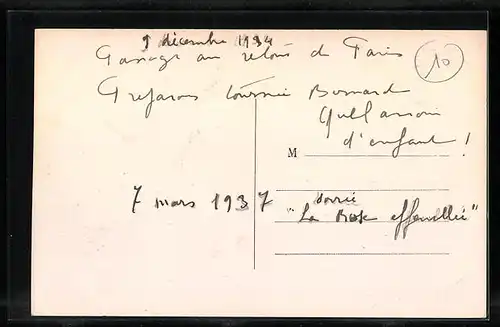 9 décembre 1934
Passage au retour de Paris
10
Préparons tournée Bernard
Quel amour
d'enfant !
M
7 mars 1937 soirée
"La Rose effeuillée"